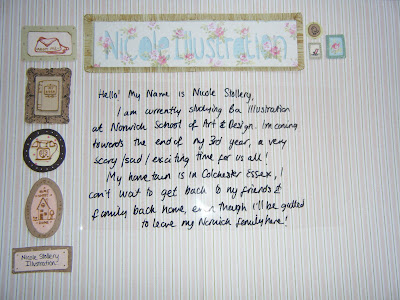 Nicole Illustration
Hello! My Name is Nicole Stollery,
I am currently studying Ba Illustration
at Norwich School of Art & Design. Im coming
towards the end of my 3rd year, a very
scary/sad/exciting time for us all!
My home town is in Colchester Essex, I
can't wait to get back to my friends &
family back home, even though I'll be gutted
to leave my Norwich family here!
"Nicole Stollery
Illustration"